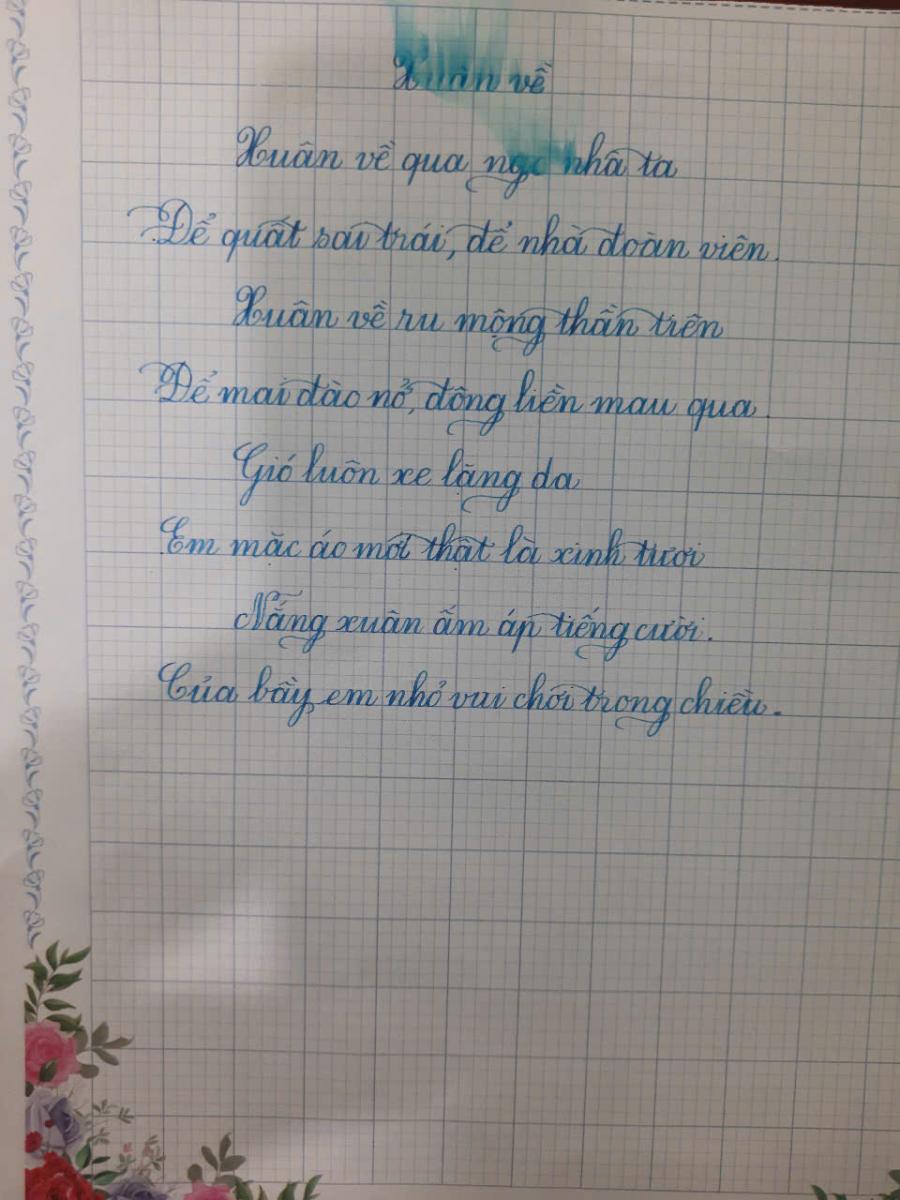 Xuân về
Xuân về qua ngõ nhà ta
Để quất sai trái, để nhà đoàn viên.
Xuân về ru mộng thần tiên
Để mai đào nở, đông liền mau qua.
Gió luôn xe lặng da
Em mặc áo mới thật là xinh tươi
Nắng xuân ấm áp tiếng cười.
Của bầy em nhỏ vui chơi trong chiều.